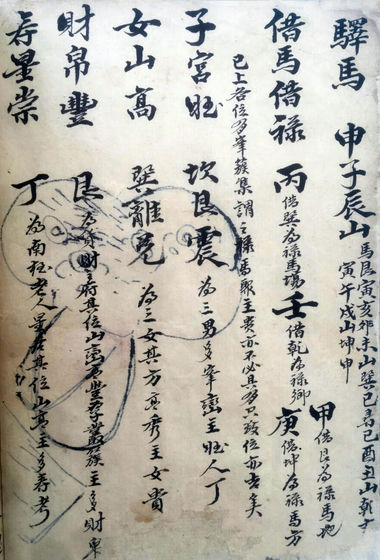 驛馬 申子辰山 馬艮寅亥卯未山巽巳 巳酉丑山乾
寅午戌山坤申
借馬借祿 丙 借巽為祿馬塲 壬 借乾為祿鄉 甲 借艮為祿馬地
庚 借坤為祿馬方
已上各位多峯簇集謂之祿馬聚主貴亦不必具多只 位亦吉矣
子宮旺 坎艮震 為三男多峯巒主旺人丁
女山高 巽離兌 為三女其方高秀主女貴
財帛豐 艮 為貨財之府其位山巒高豐厚叢簇主多財帛
寿星崇 丁 為南極老人星其位山高主多寿考